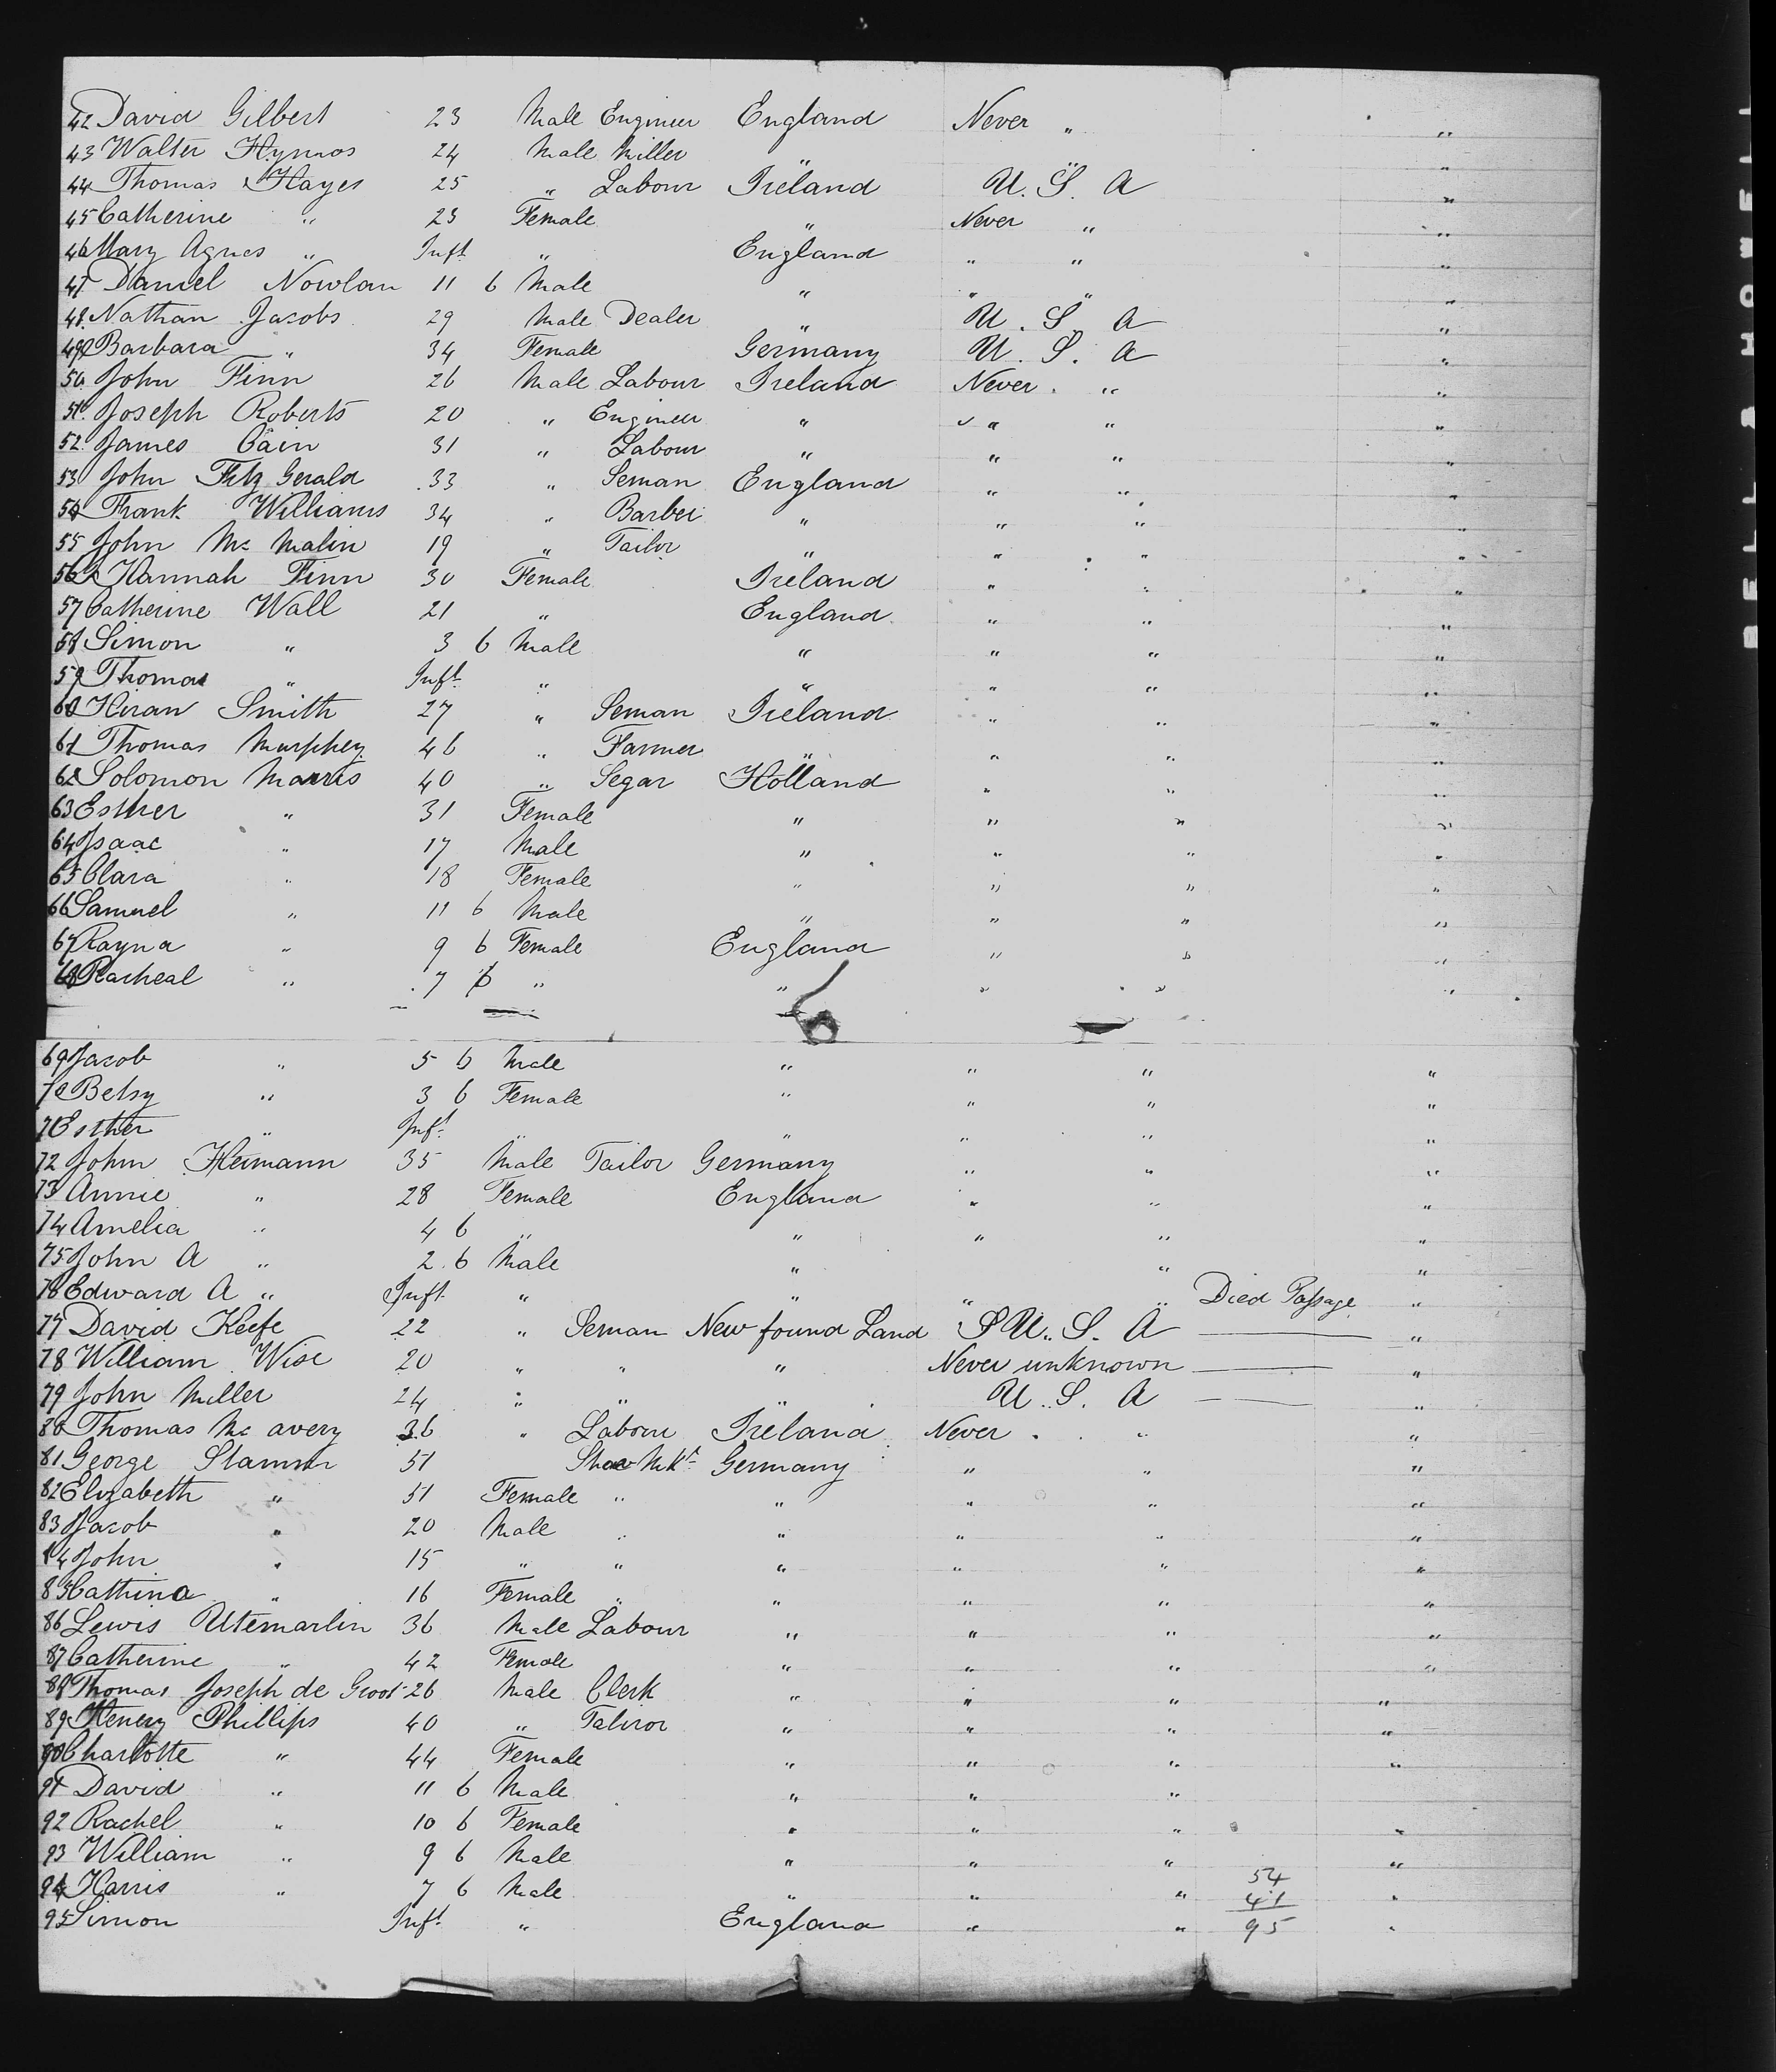 42 David Gilbert 23 Male Engineer England Never "  "
43 Walter Hymos 24 Male Miller "  "
44 Thomas Hayes 25 " Labour Ireland U. S. A "
45 Catherine " 23 Female " Never " "
46 Mary Agnes " Inft " England " " "
47 Daniel Nowlan 11 6 Male " " " "
48. Nathan Jacobs 29 Male Dealer " U. S. A "
49 Barbara " 34 Female Germany U. S. A "
50 John Finn 26 Male Labour Ireland Never. " "
51. Joseph Roberts 20 " Engineer " " " "
52. James Cain 31 " Labour " " " "
53 John Fitz Gerald 33 " Seman England " " "
54 Frank Williams 34 " Barber " " " "
55 John Mc Malin 19 " Tailor " " " "
56 Hannah Finn 30 Female Ireland " " "
57 Catherine Wall 21 " England " " "
58 Simon " 3 6 Male " " " "
59 Thomas " Inft " " " " "
60 Hiran Smith 27 " Seman Ireland " " "
61 Thomas Murphey 46 " Farmer " " " "
62 Solomon Marris 40 " Segar Holland " " "
63 Esther " 31 Female " " " "
64 Isaac " 17 Male " " " "
65 Clara " 18 Female " " " "
66 Samuel " 11 6 Male " " " "
67 Rayna " 9 6 Female England " " "
68 Racheal " 7 6 " " " " "
6
69 Jacob " 5 6 Male " " " "
70 Betsy " 3 6 Female " " " "
71 Esther " Inft " " " " "
72 John Heimann 35 Male Tailor Germany " " "
73 Annie " 28 Female England " " "
74 Amelia " 4 6 " " " " "
75 John A " 2. 6 Male " " "
76 Edward A " Inft " " " " Died Passage "
77 David Keefe 22 " Seman New found Land U. S. A "
78 William Wise 20 " " " Never unknown "
79 John Miller 24 " " " U. S. A "
80 Thomas Mc avery 36 " Labour Ireland Never " "
81 George Stammr 51 Shoe Mkr Germany " " "
82 Elizabeth " 51 Female " " " " "
83 Jacob " 20 Male " " " " "
84 John " 15 " " " " " "
85 Cathina " 16 Female " " " " "
86 Lewis Utemarlin 36 Male Labour " " " "
87 Catherine " 42 Female " " " "
88 Thomas Joseph de Groot 26 Male Clerk " " " "
89 Henery Phillips 40 " Taliror " " " "
90 Charlotte " 44 Female " " " "
91 David " 11 6 Male " " "
92 Rachel " 10 6 Female " " " "
93 William " 9 6 Male " " " "
94 Harris " 7 6 Male " " " "
95 Simon Inft " England " " "
54
41
95